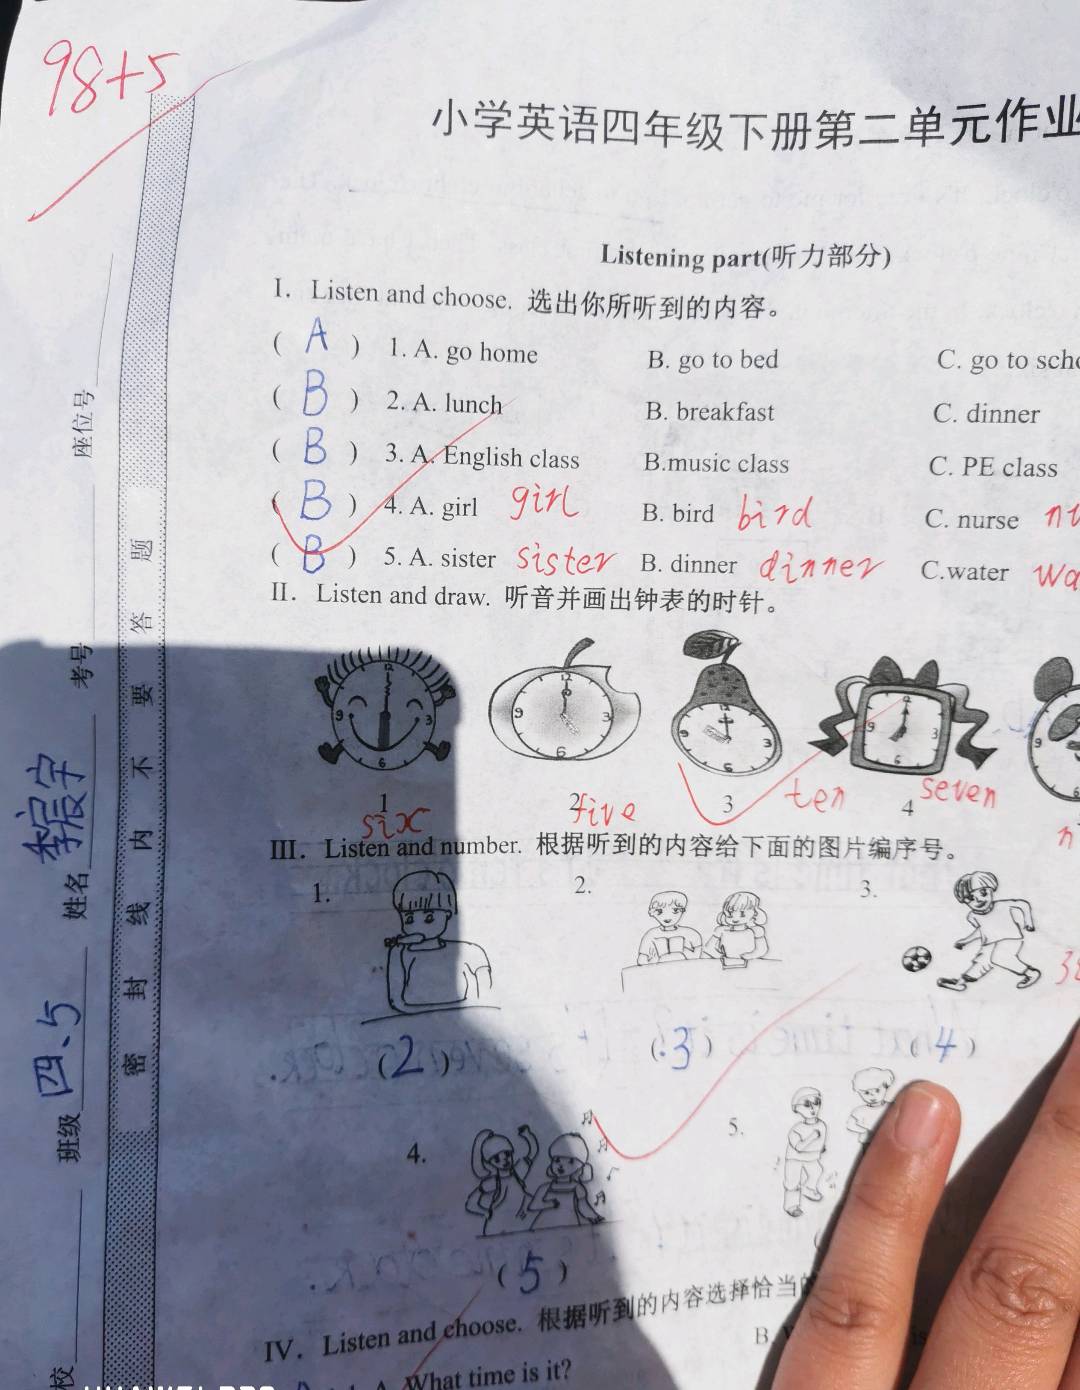 98+5
小学英语四年级下册第二单元作业
Listening part(听力部分)
I. Listen and choose. 选出你所听到的内容。
( A ) 1. A. go home B. go to bed C. go to sch
( B ) 2. A. lunch B. breakfast C. dinner
( B ) 3. A. English class B.music class C. PE class
( B ) 4. A. girl girl B. bird bird C. nurse
( B ) 5. A. sister sister B. dinner dinner C.water
II. Listen and draw. 听音并画出钟表的时针。
1 2 3 4
six five ten seven
III. Listen and number. 根据听到的内容给下面的图片编序号。
1. 2. 3.
(2) (3) (4)
4. 5.
(5)
IV. Listen and choose. 根据听到的内容选择恰当
B.
A. What time is it?
校
班级 四、5
姓名
考号
座位号
密封线内不要答题